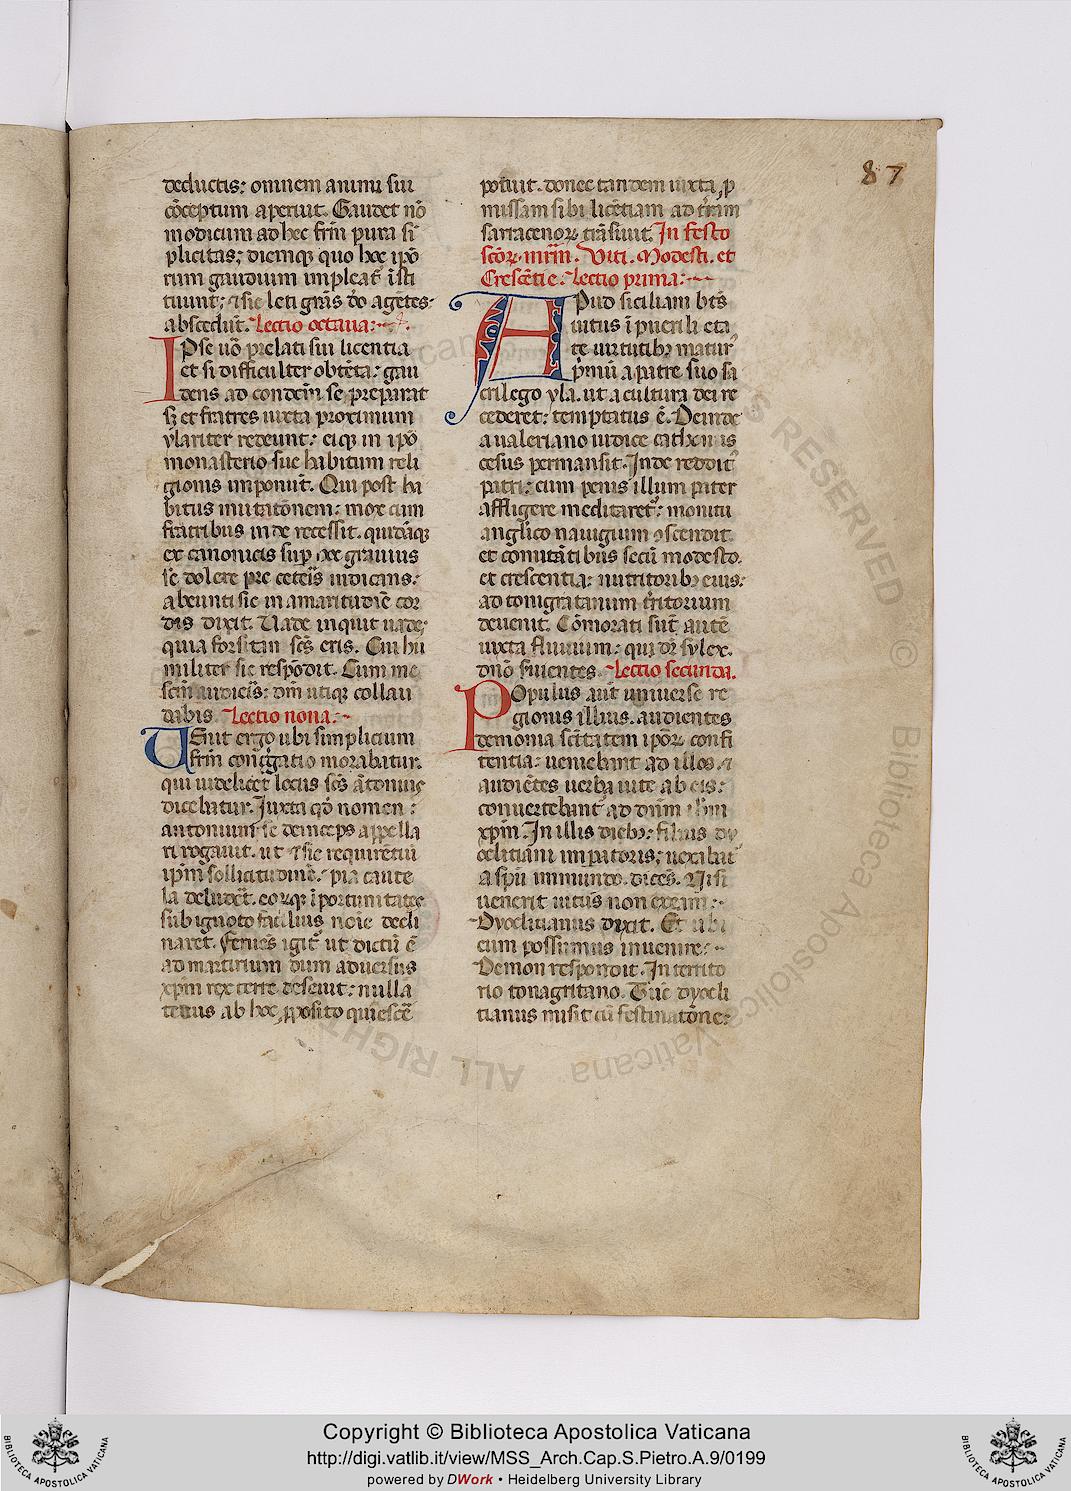 87
deductis: omnem animi sui
cōceptum aperuit. Gaudet nō
modicum ad hec frm̄ pura si
plicitas; diemq; quo hoc ip̄o
rum gaudium impleat̄ īsti
tuunt; ⁊ sic leti grās do agētes·
abscedūt. Lectio octaua:~
IPse uō prelati sui licentia
et si difficulter obtēta: gau
dens ad condem̄ se preparat
sꝫ et fratres iuxta proximum
ylariter redeunt: eiq; in ip̄o
monasterio sue habitum reli
gionis imponūt. Qui post ha
bitus mutatōnem: mox cum
fratribus inde recessit. quidāq;
ex canonicis suꝑ hoc grauius
se dolere pre ceteris iudicans:
abeunti sic in amaritudīe cor
dis dixit. Uade inquit uade;
quia forsitan scs̄ eris. Cui hu
militer sic respōdit. Cum me
scm̄ audieris: dm̄ utiq; collau
dabis. Lectio nona:~
UEnit ergo ubi simplicium
frm̄ congregatio morabatur.
qui uidelicet locus scs̄ ātonius
dicebatur. Iuxta qd̄ nomen:
antonium se deinceps appella
ri rogauit. ut ⁊ sic requirētiū
ipm̄ sollicitudinē: pia caute
la deludet. eorq; īportunitatē
sub ignoto facilius noīe decli
naret. Feruēs igit̄ ut dictū ē
ad martirium dum aduersus
xpm̄ rex terre deseuit: nulla
tenus ab hoc ꝓposito quiescē
potuit. donec tandem iuxta ꝓ
missam sibi licētiam ad tr̄am
sarracenoꝝ trāsiuit. In festo
scōꝝ mr̄m̄. Viti. Modesti. et
Crescētie. Lectio prima:~
APud siciliam bt̄s
uitus ī puerili eta
te uirtutibꝫ matur᾽
p̄mū a patre suo sa
crilego yla. ut a cultura dei re
cederet: temptatus ē. Deinde
a ualeriano iudice
cesus permansit. Inde reddit᾽
patri: cum penis illum pater
affligere meditaret̄: monitu
anglico nauigium ꝯscendit.
et comitātibus secū modesto.
et crescentia: nutritoribꝫ eius:
ad tr̄itorium
deuenit. Cōmorati sūt autē
iuxta fluuium: qui dr̄ sylex.
dnō suientes. Lectio secunda.
POpulus aut̄ uniuerse re
gionis illius. audientes
demonia scītatem ip̄oꝝ confi
tentia: ueniebant ad illos. ⁊
audiētes uerba uite ab eis:
conuertebant̄ ad dnm̄ ihm̄
xpm̄. In illis diebꝫ: filius dy
oclitiani impatoris; uexabat᾽
a spū immundo. dicēs. Nisi
uenerit uitus non exeam:
Dyoclitianus dixit. Et ubi
eum possumus inuenire:~
Demon respondit. In territo
rio tonagritano. Tūc dyocli
tianus misit cū festinatōne:
© Biblioteca Apostolica Vaticana ALL RIGHTS RESERVED
Copyright © Biblioteca Apostolica Vaticana
http://digi.vatlib.it/view/MSS_Arch.Cap.S.Pietro.A.9/0199
powered by DWork • Heidelberg University Library
BIBLIOTECA APOSTOLICA VATICANA
BIBLIOTECA APOSTOLICA VATICANA